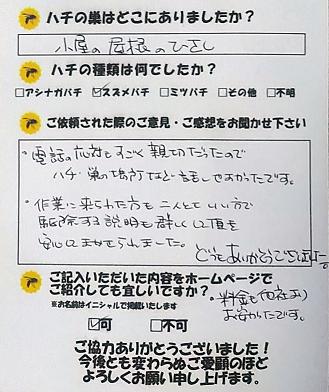 ハチの巣はどこにありましたか？
小屋の屋根のひさし
ハチの種類は何でしたか？
□アシナガバチ ☑スズメバチ □ミツバチ □その他 □不明
ご依頼された際のご意見・ご感想をお聞かせ下さい
・電話の応対もすごく親切だったので
ハチの巣の場所など話しやすかったです。
・作業に来られた方も二人とてもいい方で
駆除する説明も詳しくて頂き
安心してまかせられました。
どうもありがとうございました。
ご記入いただいた内容をホームページで
ご紹介しても宜しいですか？
※お名前はイニシャルで掲載いたします
☑可 □不可
料金も他社より
お安かったです。
ご協力ありがとうございました！
今後とも変わらぬご愛顧のほど
よろしくお願い申し上げます。